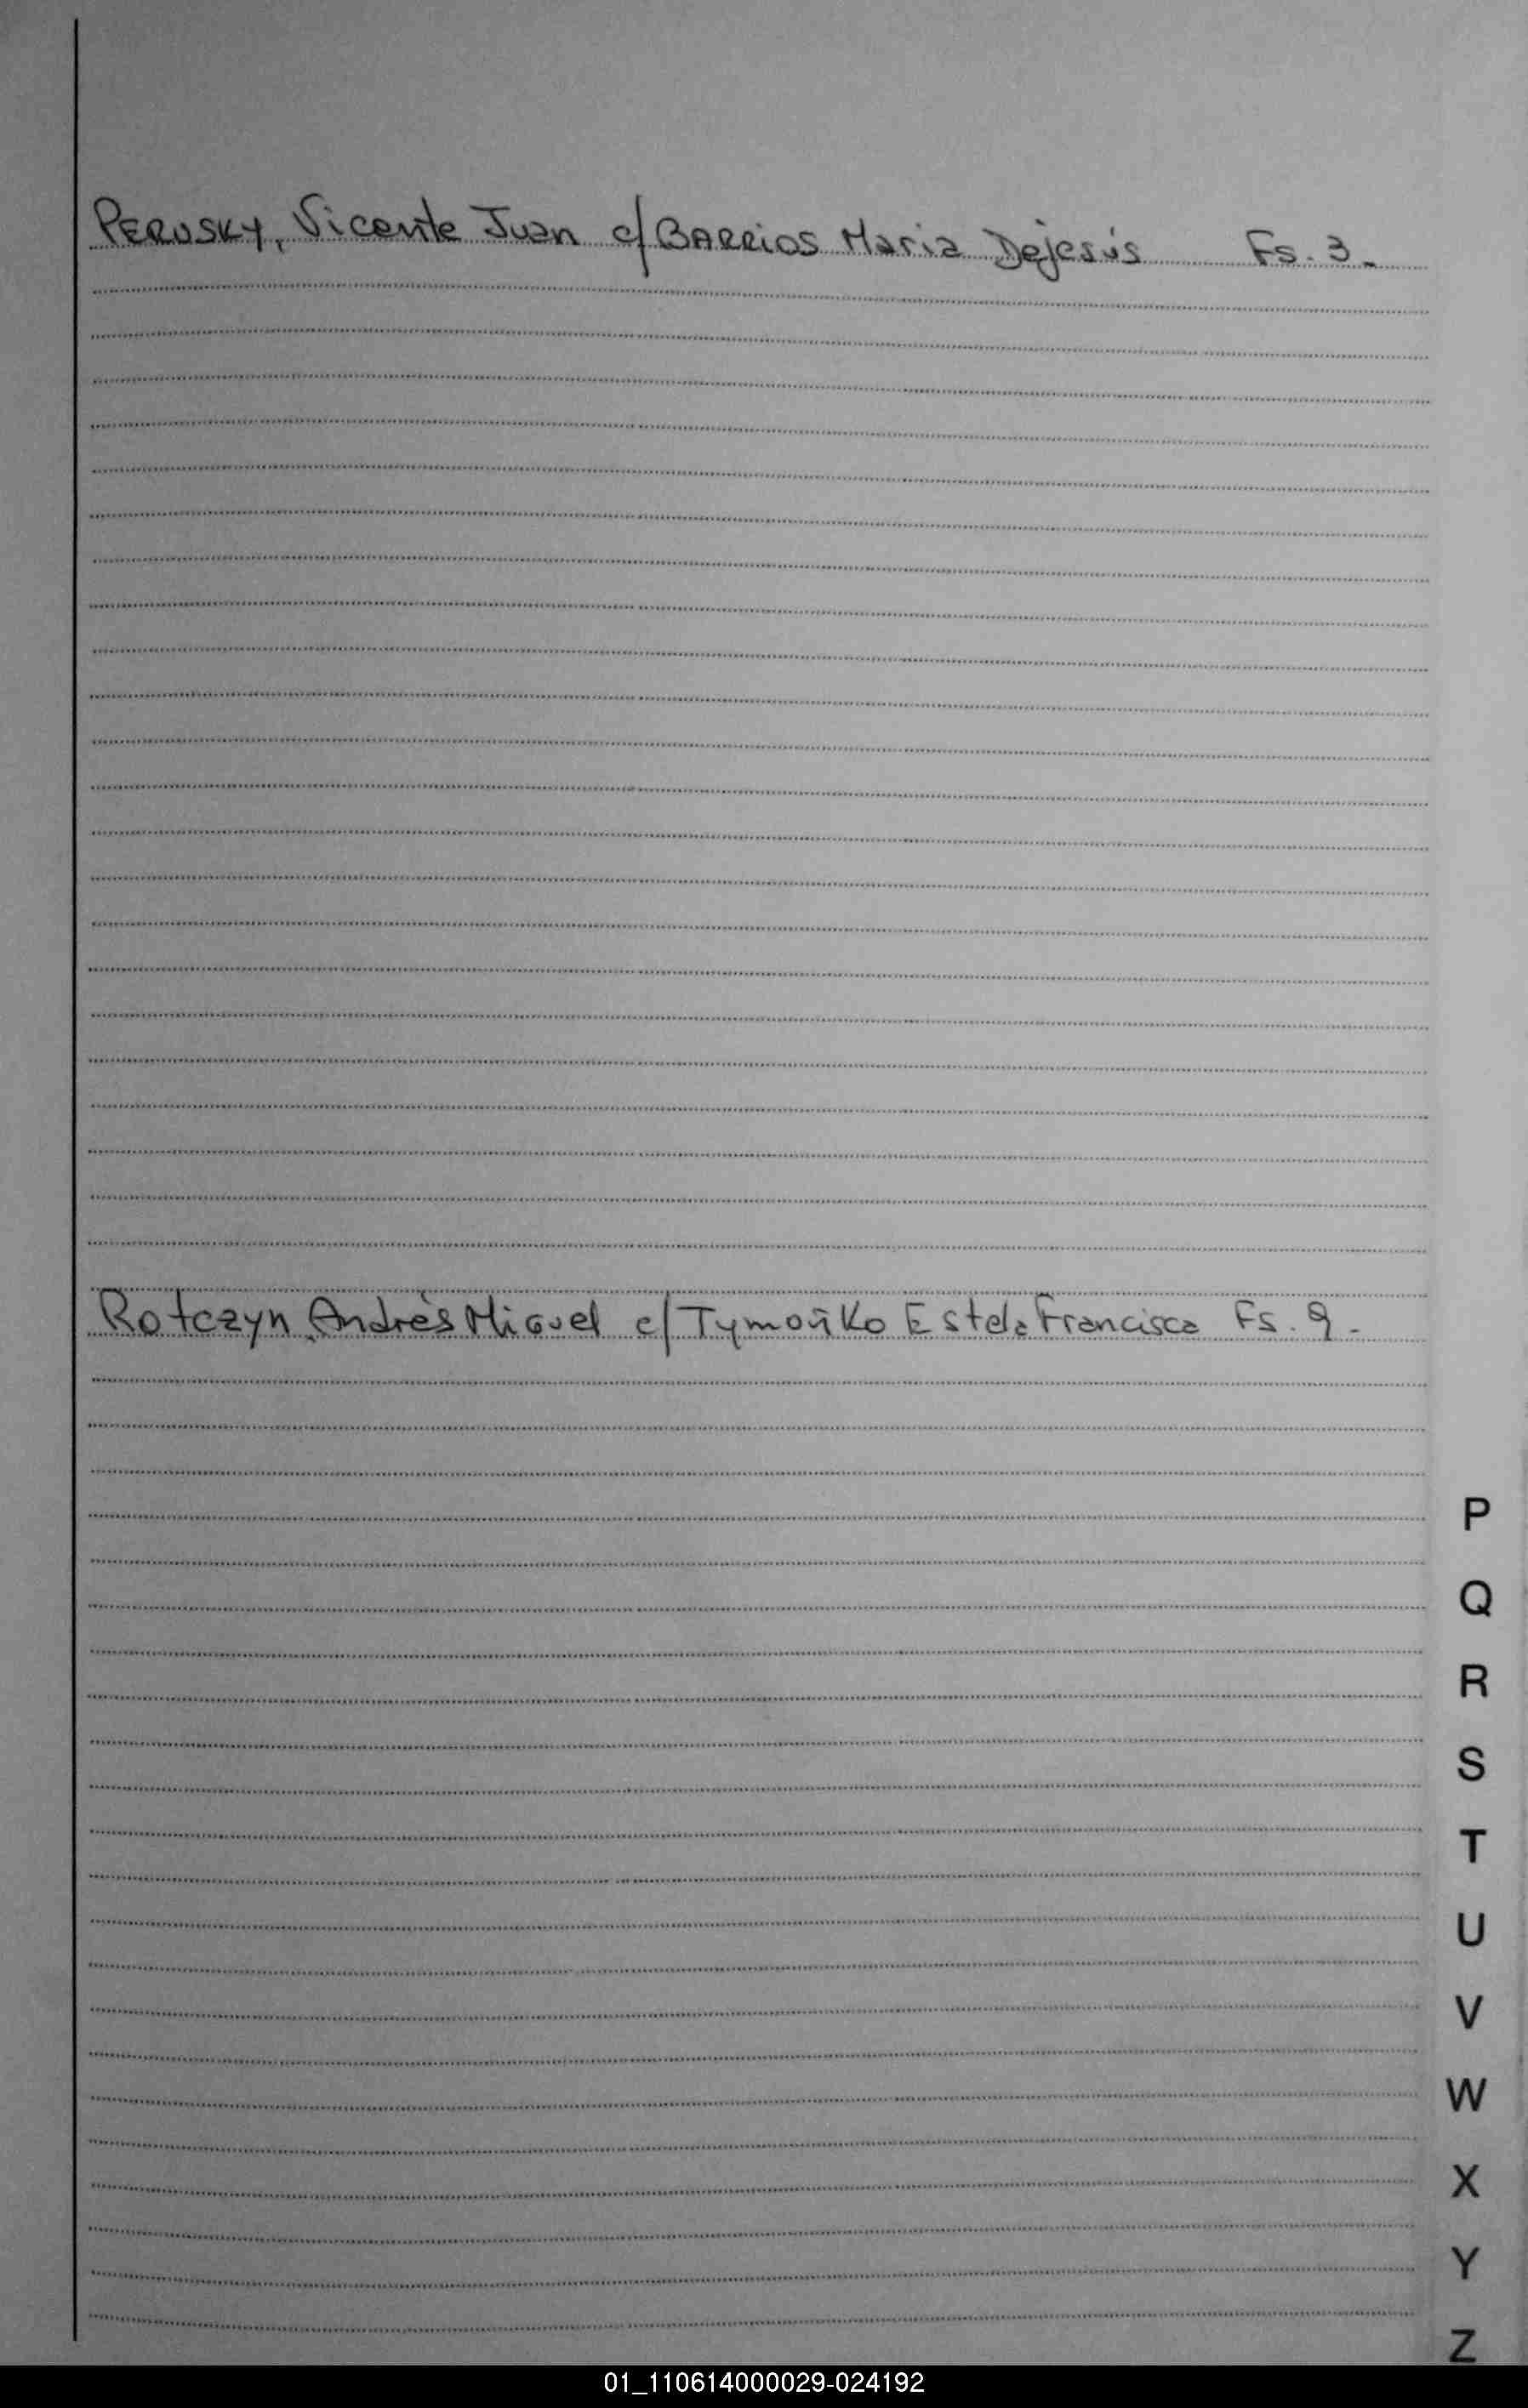 PERUSKY, Vicente Juan c/ BARRIOS Maria Dejesús Fs. 3.-
Rotczyn, Andrés Miguel c/ Tymoñko Estela Francisca Fs. 9.-
P
Q
R
S
T
U
V
W
X
Y
Z
01_110614000029-024192